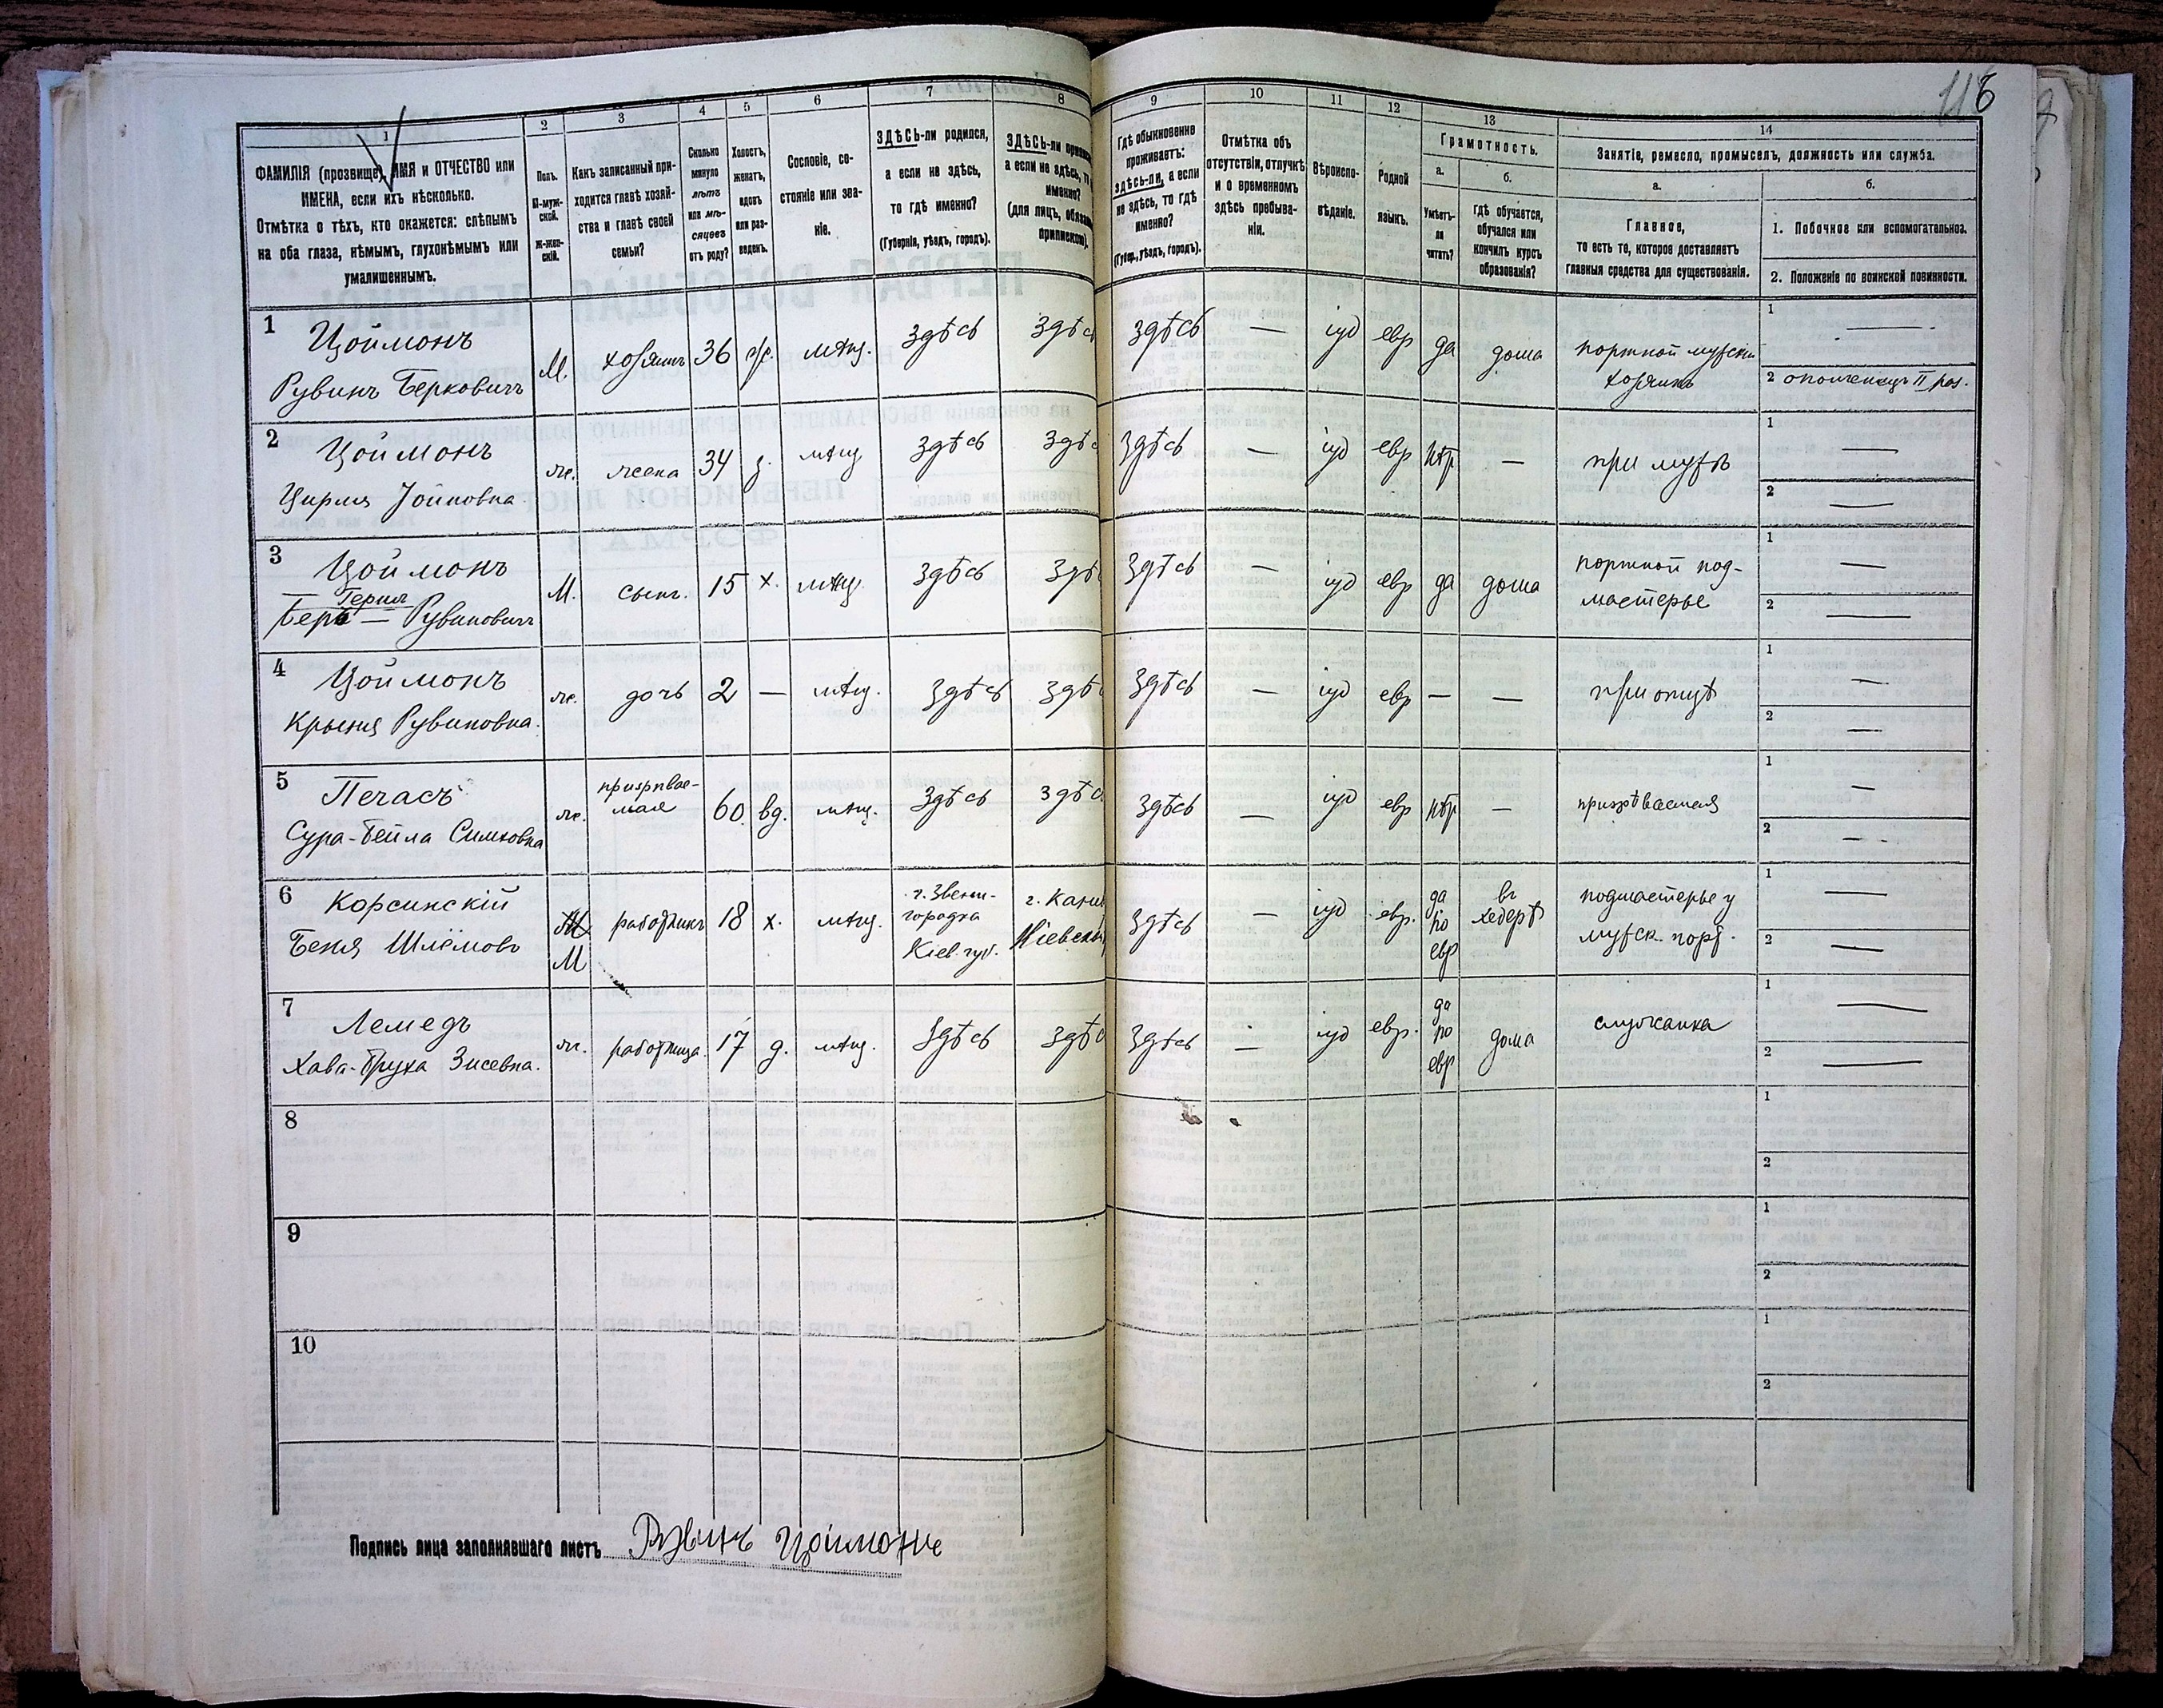 116
1
ФАМИЛІЯ (прозвище), ИМЯ и ОТЧЕСТВО или
ИМЕНА, если ихъ нѣсколько.
Отмѣтка о тѣхъ, кто окажется: слѣпымъ
на оба глаза, нѣмымъ, глухонѣмымъ или
умалишеннымъ.
2
Полъ.
М-муж-
ской.
Ж-жен-
скій.
3
Какъ записанный при-
ходится главѣ хозяй-
ства и главѣ своей
семьи?
4
Сколько
минуло
лѣтъ
или мѣ-
сяцевъ
отъ роду?
5
Холостъ,
женатъ,
вдовъ
или раз-
веденъ.
6
Сословіе, со-
стояніе или зва-
ніе.
7
ЗДѢСЬ-ли родился,
а если не здѣсь,
то гдѣ именно?
(Губернія, уѣздъ, городъ).
8
ЗДѢСЬ-ли
а если не здѣсь, то
именно?
(для лицъ,
припискою).
9
Гдѣ обыкновенно
проживаетъ:
здѣсь-ли, а если
не здѣсь, то гдѣ
именно?
(Губер., уѣздъ, городъ).
10
Отмѣтка объ
отсутствіи, отлучкѣ
и о временномъ
здѣсь пребыва-
ніи.
11
Вѣроиспо-
вѣданіе.
12
Родной
языкъ.
13
Грамотность.
а.
Умѣетъ-
ли
читать?
б.
Гдѣ обучается,
обучался или
кончилъ курсъ
образованія?
14
Занятіе, ремесло, промыселъ, должность или служба.
а.
Главное,
то есть то, которое доставляетъ
главныя средства для существованія.
б.
1. Побочное или вспомогательное.
2. Положеніе по воинской повинности.
1 Цоймонъ
Рувинъ Берковичъ
М. хозяинъ 36 мѣщ. здѣсь здѣс здѣсь — іуд евр да дома
портной мужскій
хозяинъ
1 —
2 ополченецъ II раз.
2 Цоймонъ
Цирля Іойновна
ж. жена 34 з. мѣщ здѣсь здѣс здѣсь — іуд евр нѣт — при мужѣ
1 —
2 —
3 Цоймонъ
Герия
Беръ — Рувиновичъ
М. сынъ. 15 х. мѣщ. здѣсь здѣ здѣсь — іуд евр да дома
портной под-
мастерье
1 —
2 —
4 Цоймонъ
Крыеня Рувиновна.
ж. дочь 2 — мѣщ. здѣсь здѣ здѣсь — іуд евр — — при отцѣ
1 —
2 —
5 Печасъ
Сура-Бейла Симховна
ж.
призрѣвае-
мая
60 вд. мѣщ. здѣсь здѣс здѣсь — іуд евр нѣт — призрѣваемая
1 —
2 —
6 Корсинскій
Беня Шлёмовъ
М
М
работникъ 18 х. мѣщ.
г. Звени-
городка
Кіев. губ.
г. Канев
Кіевской
здѣсь — іуд евр.
да
по
евр
въ
хедерѣ
подмастерье у
мужск. порт.
1 —
2 —
7 Лемедъ
Хава-Бруха Зисевна.
ж. работница. 17 д. мѣщ. здѣсь здѣс здѣсь — іуд евр.
да
по
евр
дома служанка
1 —
2 —
8
1
2
9
1
2
10
1
2
Подпись лица заполнявшаго листъ Рувинъ Цоймонъ